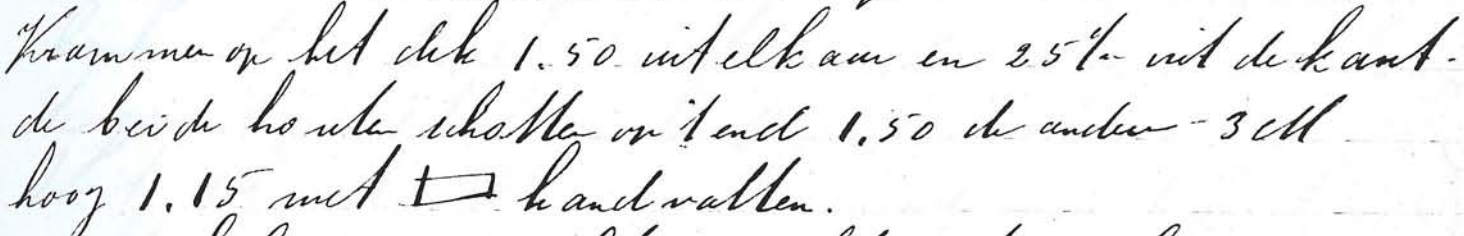 Krammen op het dek 1.50 uit elkaar en 25 c/m uit de kant.
de beide houten schotten op 't end 1.50 de andere - 3 M
hoog 1.15 met handvatten.